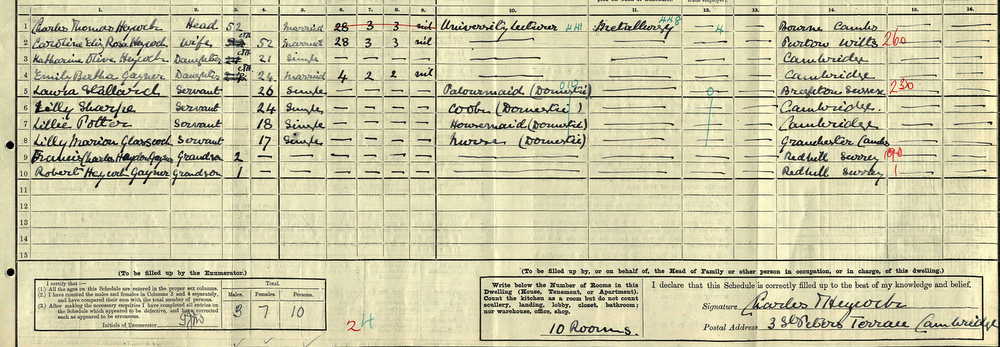 1. 2. 3. 4. 5. 6. 7. 8. 9. 10. 11. 12. 13. 14. 15. 16.
1 Charles Thomas Heycock Head 52 Married 28 3 3 nil University Lecturer 441 Metallurgy 448 4 — — Bourne Cambs — —
2 Caroline Eliz Rosa Heycock Wife 52 Married 28 3 3 nil — — — — — Purton Wilts 260 —
3 Katharine Olive Heycock Daughter 21 Single — — — — — — — — — Cambridge — —
4 Emily Bertha Gayner Daughter 24 Married 4 2 2 nil — — — — — Cambridge — —
5 Laura Servant 26 Single — — — — Parlourmaid (Domestic) — 0 — — Brighton Sussex 230 —
6 Lilly Sharpe Servant 24 Single — — — — Cook (Domestic) — — — Cambridge. — —
7 Lillie Potter Servant 18 Single — — — — Housemaid (Domestic) — — — Cambridge — —
8 Lilly Marion Glasscock Servant 17 Single — — — — Nurse (Domestic) — — — Granchester Cambs —
9 Francis Charles Heydon Gayner Grandson 2 — — — — — — — — — — — Redhill Surrey 190 —
10 Robert Heycock Gayner Grandson 1 — — — — — — — — — — — Redhill Surrey 1 —
11
12
13
14
15
(To be filled up by the Enumerator.)
I certify that:—
(1.) All the ages on this Schedule are entered in the proper sex columns.
(2.) I have counted the males and females in Columns 3 and 4 separately, and have compared their sum with the total number of persons.
(3.) After making the necessary enquiries I have completed all entries on the Schedule which appeared to be defective, and have corrected such as appeared to be erroneous.
Initials of Enumerator
Total.
Males. Females. Persons.
3 7 10
24
(To be filled up by, or on behalf of, the Head of Family or other person in occupation, or in charge, of this dwelling.)
Write below the Number of Rooms in this Dwelling (House, Tenement, or Apartment). Count the kitchen as a room but do not count scullery, landing, lobby, closet, bathroom; nor warehouse, office, shop.
10 Rooms.
I declare that this Schedule is correctly filled up to the best of my knowledge and belief.
Signature Charles T Heycock
Postal Address 3 St Peters Terrace Cambridge